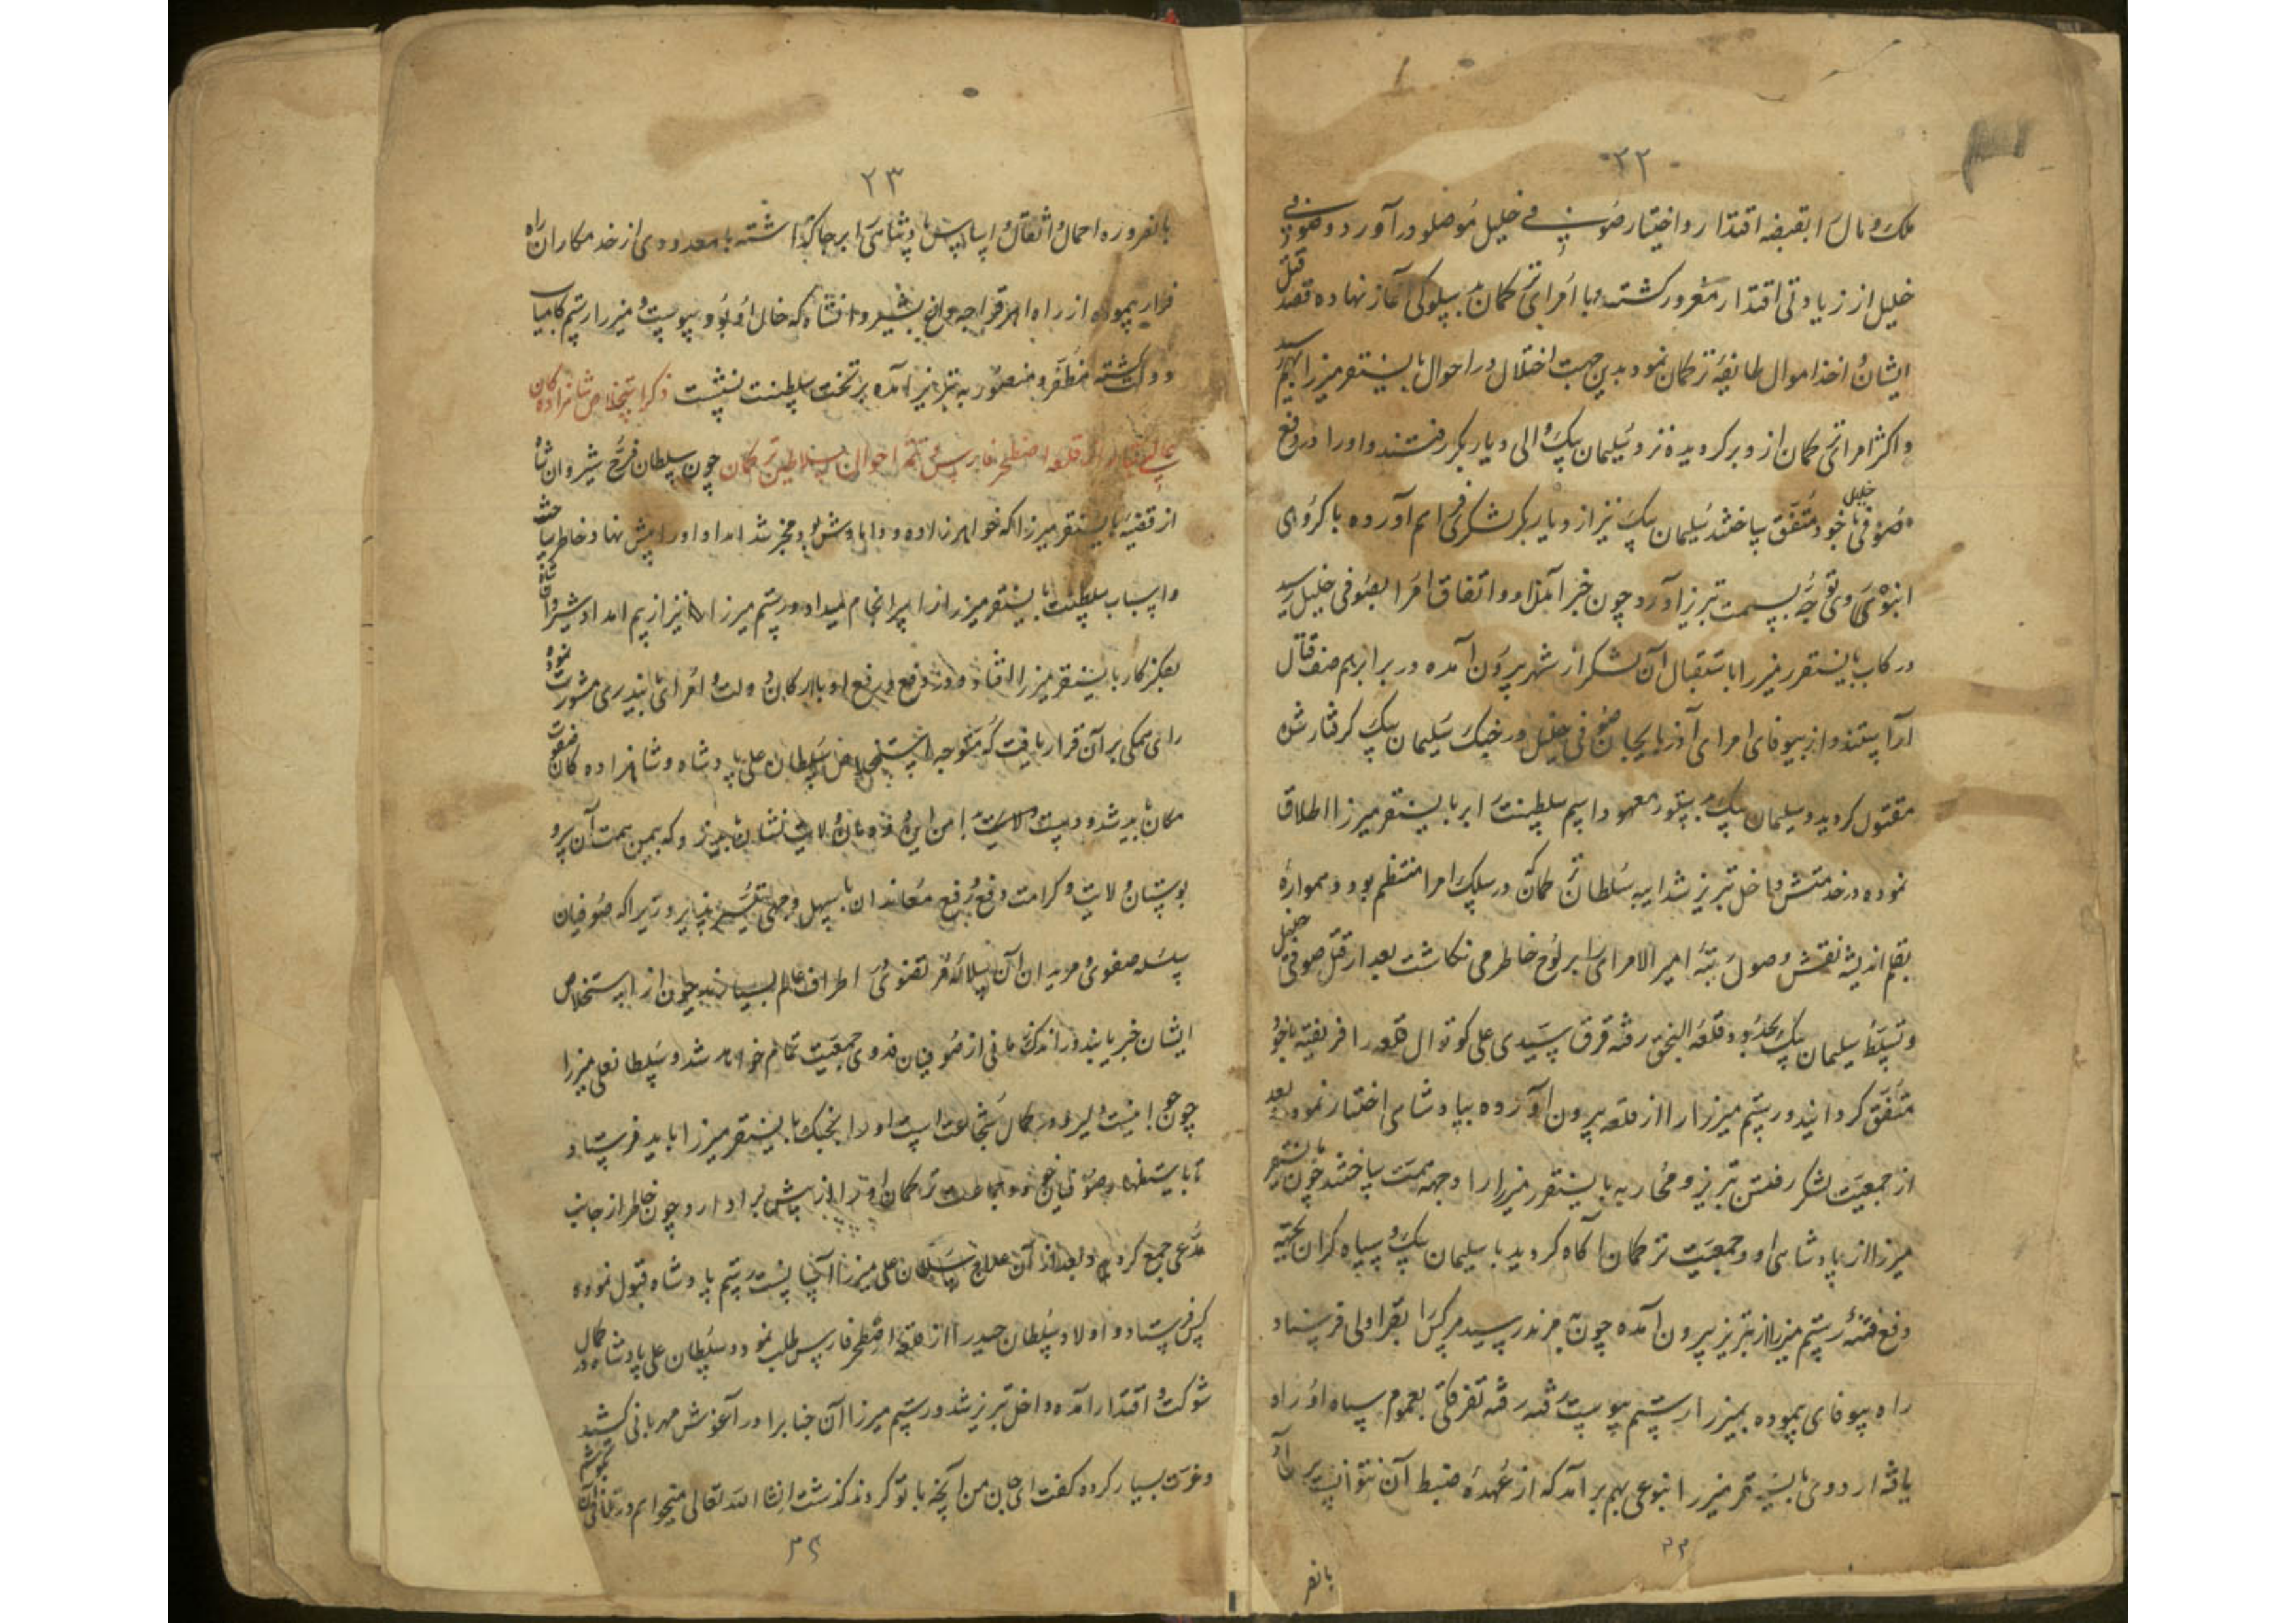 ۲۲
ملک و مال را بقبضه اقتدار و اختیار صوفی خلیل موصلو در آورد و صوفی
خلیل از زیادتی اقتدار مغرور کشته و با امرای ترکمان بد سلوکی آغاز نهاده قصد قتل
ایشان و اخذ اموال طایفه ترکمان نمود بدین جهت اختلال در احوال بایسنقر میرزا بهم رسید
و اکثر امرای ترکمان از و بر کردیده نزد سلیمان بیک والی دیار بکر رفتند و او را در دفع
صوفی خلیل با خود متفق ساختند سلیمان بیک نیز از دیار بکر لشکری فراهم آورده با کروهی
انبوه روی توجه بسمت تبریز آورد چون خبر آمدن او و اتفاق امرا بصوفی خلیل رسید
در رکاب بایسنقر میرزا باستقبال آن لشکر از شهر بیرون آمده در برابر هم صف قتال
آراستند و از بیوفای امرای آذربایجان صوفی خلیل در جنک سلیمان بیک کرفتار شده
مقتول کردید و سلیمان بیک بدستور معهود اسم سلطنت را بر بایسنقر میرزا اطلاق
نموده در خدمتش داخل تبریز شد ایبه سلطان ترکمان که در سلک امرا منتظم بود و همواره
بقلم اندیشه نقش وصول رتبه امیر الامرای را بر لوح خاطر می نکاشت بعد از قتل صوفی خلیل
و تسلط سلیمان بیک بحدود قلعه النجق رفته قرق سیدی علی کوتوال قلعه را فریفته با خود
متفق کردانید و رستم میرزا را از قلعه بیرون آورده بپادشاهی اختیار نمود و بعد
از جمعیت لشکر رفتن تبریز و محاربه بایسنقر میرزا را وجهه همت ساختند چون بایسنقر
میرزا از پادشاهی او و جمعیت ترکمان آکاه کردید با سلیمان بیک و سپاه کران بجهة
دفع فتنه رستم میرزا از تبریز بیرون آمده چون بمرند رسید هر کس را بقراولی فرستاد
راه بیوفای پیموده بمیرزا رستم پیوست رفته رفته تفرکی بعموم سپاه او راه
یافته اردوی بایسنقر میرزا بنوعی بهم بر آمد که از عهده ضبط آن نتوانست بر آمد
۲۲
بالضر
۲۳
بالضروره احمال و اثقال و اسباب پادشاهی را بر جا کذاشته با معدودی از خدمتکاران راه
فرار پیموده از راه اهر قراجه داغ بشیروانشاه که خال او بود پیوست و میرزا رستم کامیاب
دولت کشته مظفر و منصور به تبریز آمده بر تخت سلطنت نشست ذکر استخلاص شاهزادکان
عالی تبار از قلعه اصطخر فارس و تتمه احوال سلاطین ترکمان چون سلطان فرخ شیروان شاه
از قضیه بایسنقر میرزا که خواهر زاده و داماد وش بود مخبر شد امداد او را پیش نهاد خاطر ساخت
و اسباب سلطنت بایسنقر میرزا را سرانجام میداد و رستم میرزا نیز از بیم امداد شیروان شاه
بفکر کار بایسنقر میرزا افتاده و در دفع و رفع او با ارکان دولت و امرای بایندری مشورت نموده
رای همکی بر آن قرار یافت که متوجه استخلاص سلطان علی پادشاه و شاهزاده کان صفوت
مکان باید شد و دست ولایت بدامن این دودمان ولایت نشان باید زد که بیمن همت آن سرو
بوستان ولایت و کرامت دفع و رفع معاندان باسهل وجهی تیسیر پذیرد زیرا که صوفیان
سلسله صفوی و مریدان آن سلاله مرتضوی در اطراف عالم بسیارند چون از استخلاص
ایشان خبر یابند در اندک زمانی از صوفیان فدوی جمعیت تمام خواهد شد و سلطانعلی میرزا
چون جوانیست دلیر و در کمال شجاعت است او را بجنک بایسنقر میرزا باید فرستاد
تا باستظهار صوفیان خود و جماعت ترکمان او را از پیش بردارد و چون خاطر از جانب
مدعی جمع کردید بعد از آن علاج سلطان علی میرزا آسانست رستم پادشاه قبول نموده
کس فرستاد و اولاد سلطان حیدر را از قلعه اصطخر فارس طلب نمود و سلطان علی پادشاه در کمال
شوکت و اقتدار آمده داخل تبریز شد و رستم میرزا آن جنابرا در آغوش مهربانی کشید
و عزت بسیار کرده کفت ای جان من آنچه با تو کردند کذشت انشا الله تعالی میخواهم در تلافی آن
۲۳